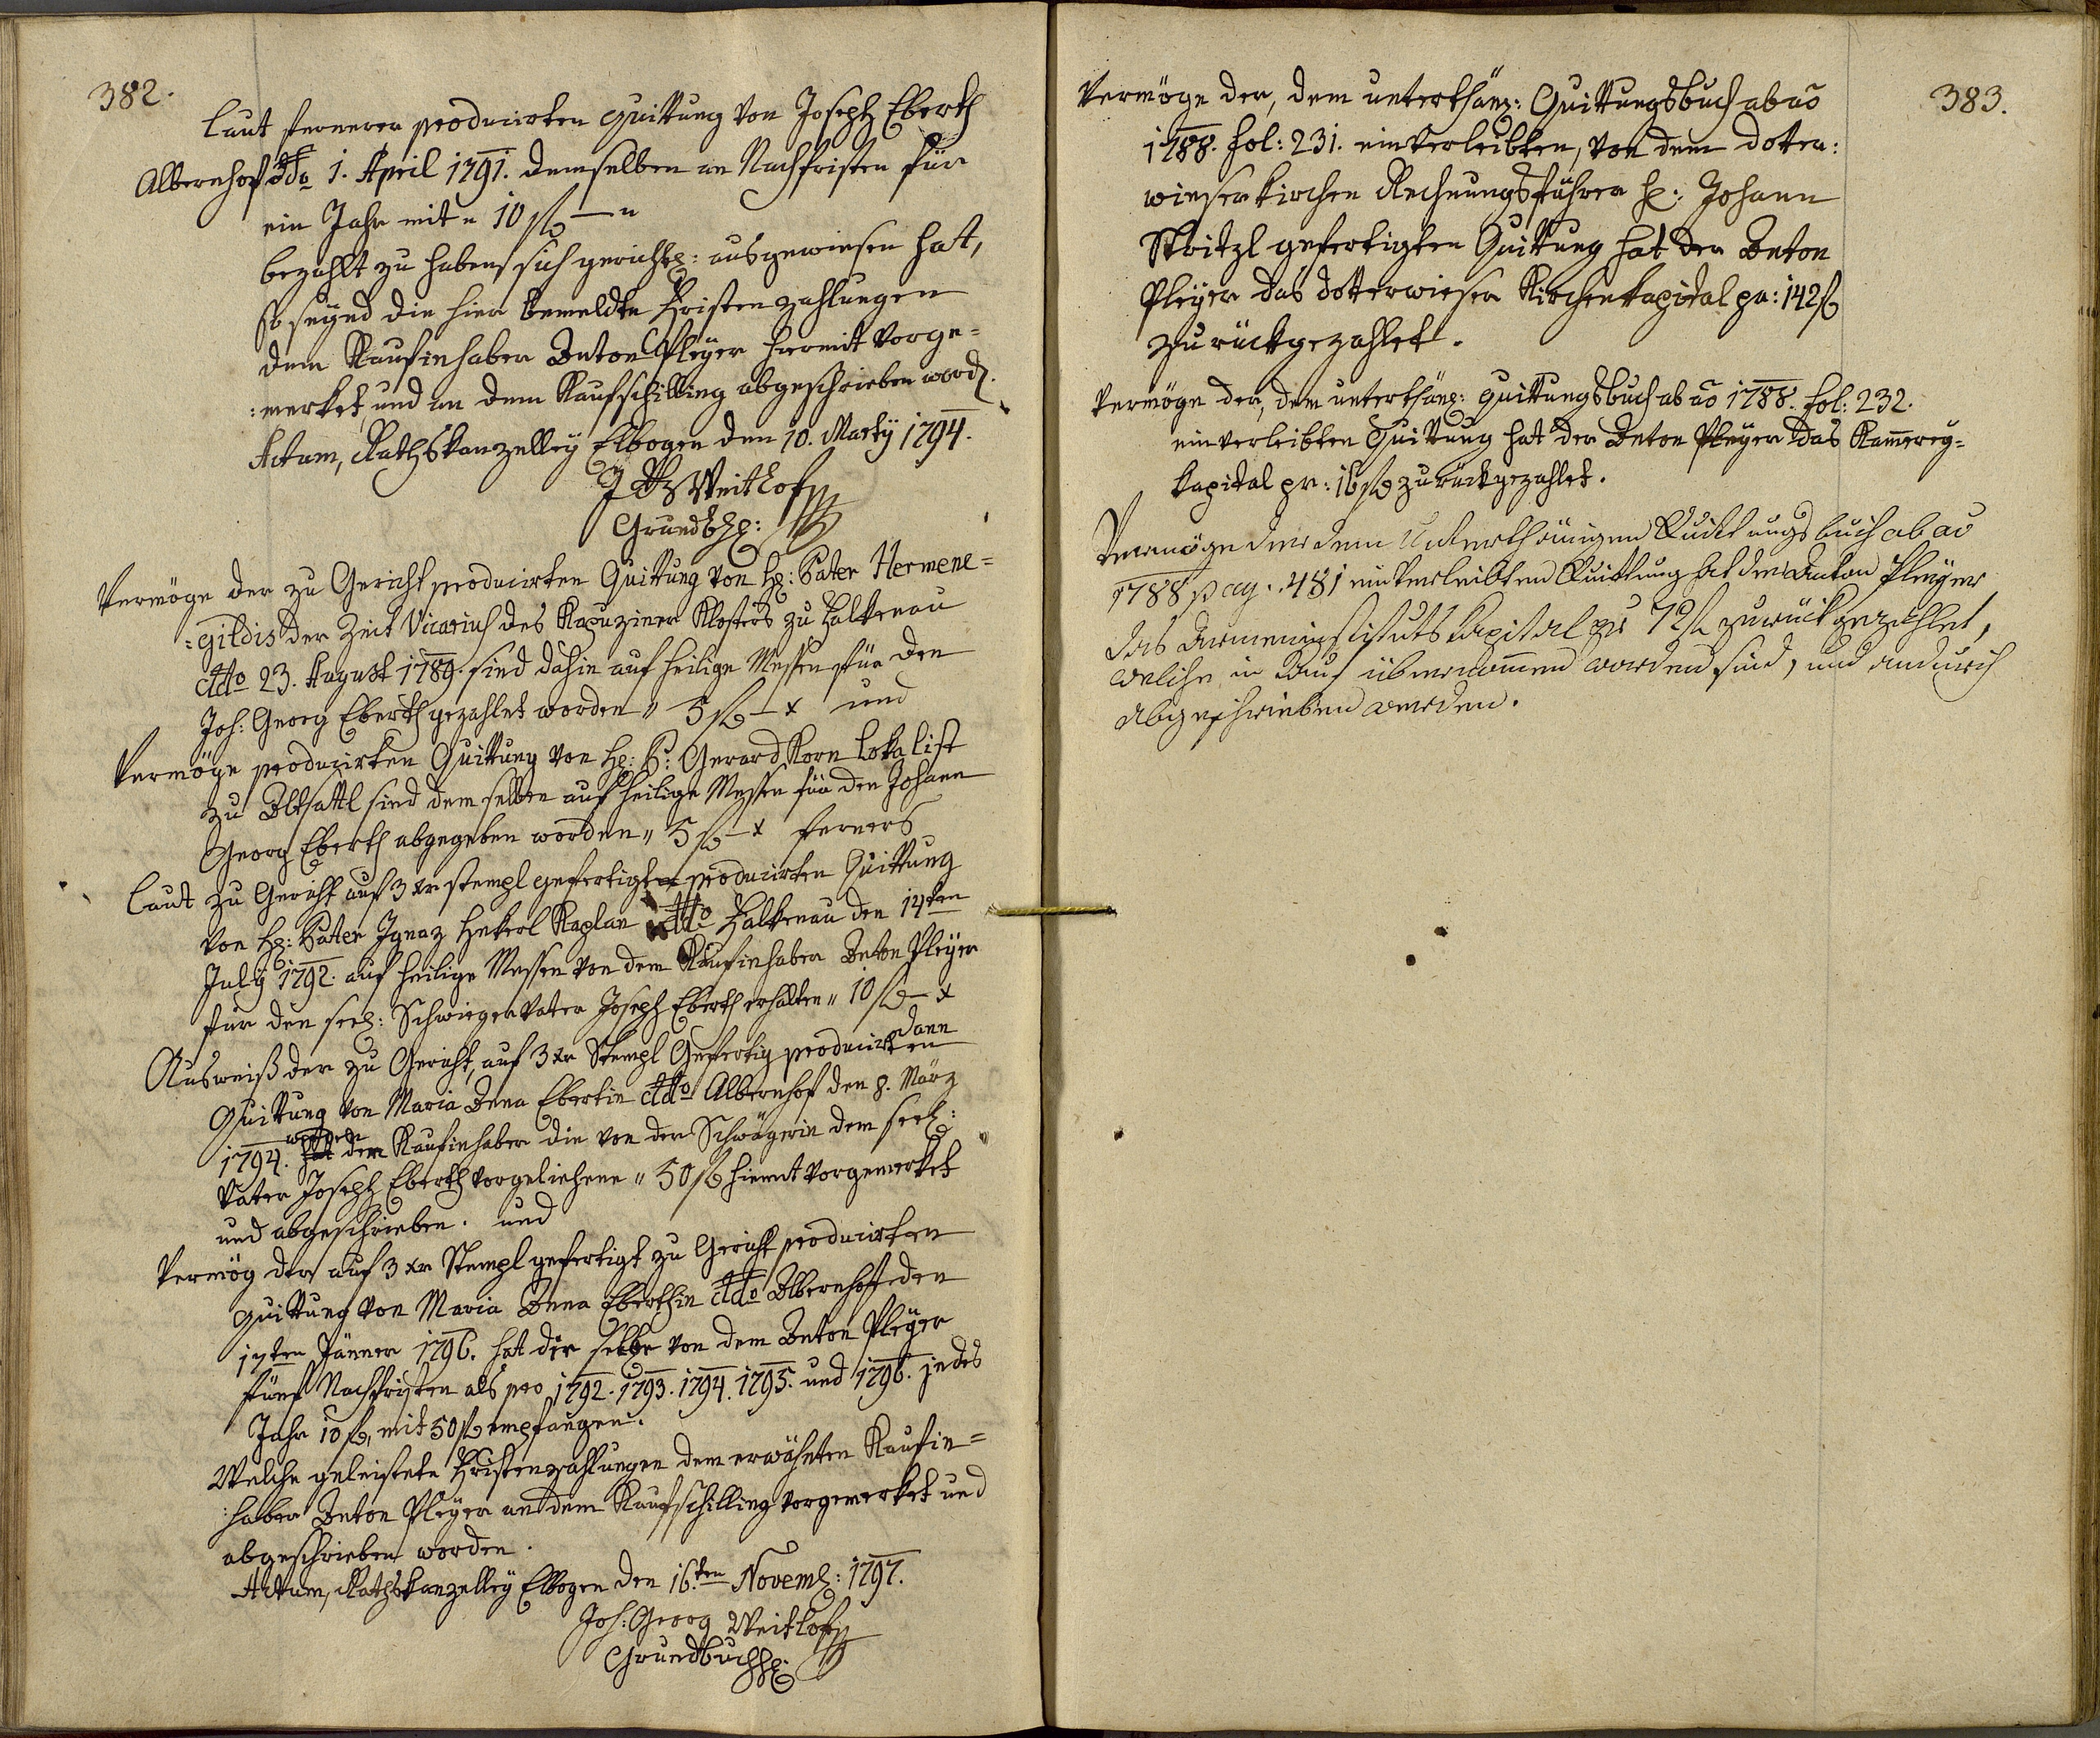 382.
Laut fernerer producirten Quittung von Joseph Eberth
Albernhof ddo 1. April 1791. demselben an Nachfristen für
ein Jahr mit " 10 f — "
bezahlt zu haben sich gerichtl: ausgewiesen hat,
so seynd die hier bemeldte Fristenzahlungen
dem Kaufinhaber Anton Pleÿer hiemit vorge=
:merket, und an dem Kaufschilling abgeschrieben word.
Actum, Rathskanzelleÿ Elbogen den 10. Martÿ 1794.
J G Weithof
Grundbh:
Vermöge der zu Gericht producirten Quittung von H: Pater Hermene=
:gildis der Zeit Vicarius des Kapuziner Klosters zu Falkenau
ddto 23. August 1789. sind dahin auf heilige Messen für den
Joh: Georg Eberth gezahlet worden " 5 f — x und
Vermöge producirten Quittung von H: P: Gerard Korn Lokalist
zu Altsattl sind demselben auf heilige Messen für den Johann
Georg Eberth abgegeben worden " 5 f — x ferners
Laut zu Gericht auf 3 xr stempl gefertigte producirten Quittung
von H: Pater Ignaz Hekerl Kaplan ddto Falkenau den 14ten
Julÿ 1792. auf heilige Messen von dem Kaufinhaber Anton Pleÿer
für den seel: Schwiegervater Joseph Eberth erhalten " 10 f — x
dann
Ausweiß der zu Gericht, auf 3 xr Stempl Gefertig producirten
Quittung von Maria Anna Ebertin ddto Albernhof den 8. März
1794. werden dem Kaufinhaber die von der Schwägerin dem seel:
Vater Joseph Eberth vorgeliehene " 50 f hiemit vorgemerket
und abgeschrieben. und
Vermög der auf 3 xr Stempl gefertigt zu Gericht producirten
Quittung von Maria Anna Eberthin ddo Albernhof den
17ten Jänner 1796. hat die selbe von dem Anton Pleÿer
fünf Nachfristen als pro 1792. 1793. 1794. 1795. und 1796. jedes
Jahr 10 f, mit 50 f empfangen.
Welche geleistete Fristenzahlungen dem erwähnten Kaufin=
:haber Anton Pleÿer an dem Kaufschilling vorgemerket und
abgeschrieben worden.
Actum, Rathskanzelleÿ Elbogen den 16.ten Novemb: 1797.
Joh: Georg Weithof
Grundbuchh:
383.
Vermöge der, dem unterthän: Quittungsbuch ab ao
1788. fol: 231. einverleibten, von dem Dotter:
wieserkirchen Rechnungsführer H: Johann
Stritzl gefertigten Quittung hat der Anton
Pleÿer das dotterwieser Kirchenkapital pr: 142 f
zurückgezahlet.
Vermöge der, dem unterthän: Quittungsbuch ab ao 1788. fol: 232.
einverleibten Quittung hat der Anton Pleÿer das Kammereÿ=
kapital pr: 16 f zurückgezahlet.
Vermöge der dem Unterthänigen Quittungsbuch ab ao
1788 pag. 481 einverleibten Quittung hat der Anton Pleÿer
das Armeninstituts Kapital pr 72 f zurückgezahlet,
welche in Kauf übernommen worden sind, und andurch
abgeschrieben werden.